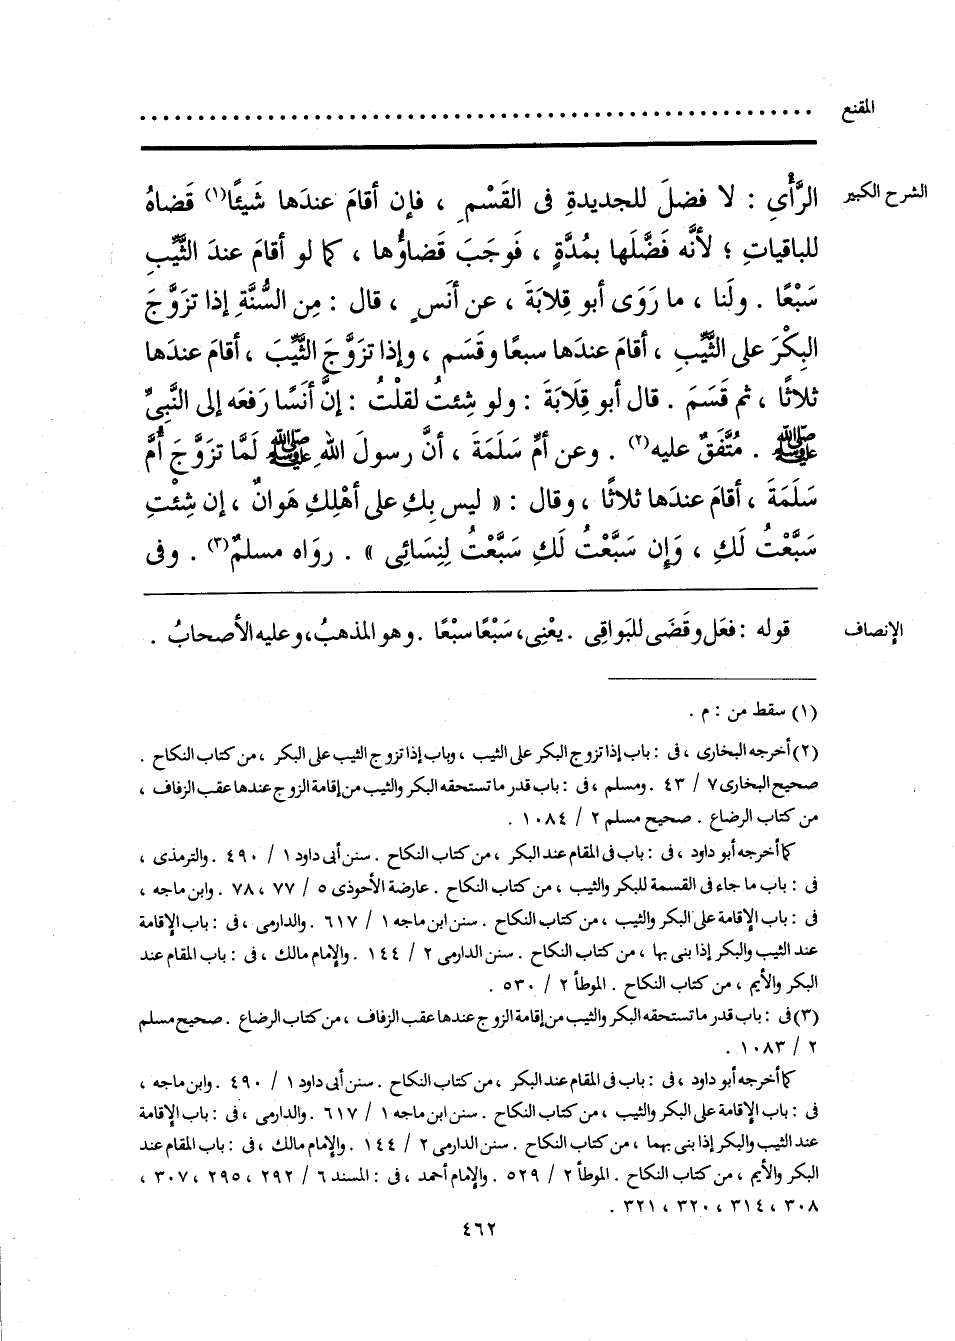 المقنع ........................................................
الشرح الكبير الرَّأْىِ : لا فضلَ للجديدةِ فى القَسْمِ ، فإن أقامَ عندَها شَيئًا(١) قَضاهُ
للباقياتِ ؛ لأنَّه فَضَّلَها بمُدَّةٍ ، فَوجَبَ قَضاؤُها ، كما لو أقامَ عندَ الثَّيِّبِ
سَبْعًا . ولَنا ، ما رَوَى أبو قِلابَةَ ، عن أنَسٍ ، قال : مِن السُّنَّةِ إذا تزَوَّجَ
البِكْرَ على الثَّيِّبِ ، أقامَ عندَها سبعًا وقَسَم ، وإذا تزَوَّجَ الثَّيِّبَ ، أقامَ عندَها
ثلاثًا ، ثم قَسَمَ . قال أبو قِلَابَةَ : ولو شِئتُ لقلْتُ : إنَّ أنَسًا رَفعَه إلى النَّبِىِّ
ﷺ . مُتَّفَقٌ عليه(٢) . وعن أمِّ سَلَمَةَ ، أنَّ رسولَ اللهِ ﷺ لَمَّا تزَوَّجَ أُمَّ
سَلَمَةَ ، أقامَ عندَها ثلاثًا ، وقال : « ليس بِكِ على أهْلِكِ هَوانٌ ، إن شِئْتِ
سَبَّعْتُ لَكِ ، وَإِن سَبَّعْتُ لَكِ سَبَّعْتُ لِنِسَائِى » . روَاه مسلمٌ(٣) . وفى
الإنصاف قوله : فعَل وقَضَى للبواقِى . يعْنِى، سَبْعًا سبْعًا . وهو المذهبُ، وعليه الأصحابُ .
(١) سقط من : م .
(٢) أخرجه البخارى ، فى : باب إذا تزوج البكر على الثيب ، وباب إذا تزوج الثيب على البكر ، من كتاب النكاح .
صحيح البخارى ٧ / ٤٣ . ومسلم ، فى : باب قدر ما تستحقه البكر والثيب من إقامة الزوج عندها عقب الزفاف ،
من كتاب الرضاع . صحيح مسلم ٢ / ١٠٨٤ .
كما أخرجه أبو داود ، فى : باب فى المقام عند البكر ، من كتاب النكاح . سنن أبى داود ١ / ٤٩٠ . والترمذى ،
فى : باب ما جاء فى القسمة للبكر والثيب ، من كتاب النكاح . عارضة الأحوذى ٥ / ٧٧ ، ٧٨ . وابن ماجه ،
فى : باب الإقامة على البكر والثيب ، من كتاب النكاح . سنن ابن ماجه ١ / ٦١٧ . والدارمى ، فى : باب الإقامة
عند الثيب والبكر إذا بنى بها ، من كتاب النكاح . سنن الدارمى ٢ / ١٤٤ . والإمام مالك ، فى : باب المقام عند
البكر والأيم ، من كتاب النكاح . الموطأ ٢ / ٥٣٠ .
(٣) فى : باب قدر ما تستحقه البكر والثيب من إقامة الزوج عندها عقب الزفاف ، من كتاب الرضاع . صحيح مسلم
٢ / ١٠٨٣ .
كما أخرجه أبو داود ، فى : باب فى المقام عند البكر ، من كتاب النكاح . سنن أبى داود ١ / ٤٩٠ . وابن ماجه ،
فى : باب الإقامة على البكر والثيب ، من كتاب النكاح . سنن ابن ماجه ١ / ٦١٧ . والدارمى ، فى : باب الإقامة
عند الثيب والبكر إذا بنى بهما ، من كتاب النكاح . سنن الدارمى ٢ / ١٤٤ . والإمام مالك ، فى : باب المقام عند
البكر والأيم ، من كتاب النكاح . الموطأ ٢ / ٥٢٩ . والإمام أحمد ، فى : المسند ٦ / ٢٩٢ ، ٢٩٥ ، ٣٠٧ ،
٣٠٨ ، ٣١٤ ، ٣٢٠ ، ٣٢١ .
٤٦٢